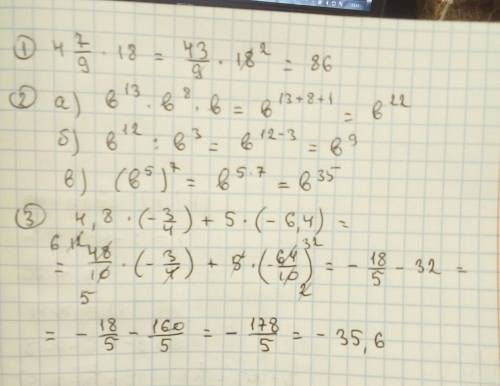 ① 4 7/9 · 18 = 43/9 · 18² = 86
② а) в¹³ · в⁸ · в = в¹³⁺⁸⁺¹ = в²²
б) в¹² : в³ = в¹²⁻³ = в⁹
в) (в⁵)⁷ = в⁵·⁷ = в³⁵
③ 4,8 · (-3/4) + 5 · (-6,4) =
6 12
= 48/10 · (-3/4) + 5 · (-64/10) 32 = - 18/5 - 32 =
5 2
= - 18/5 - 160/5 = - 178/5 = - 35,6